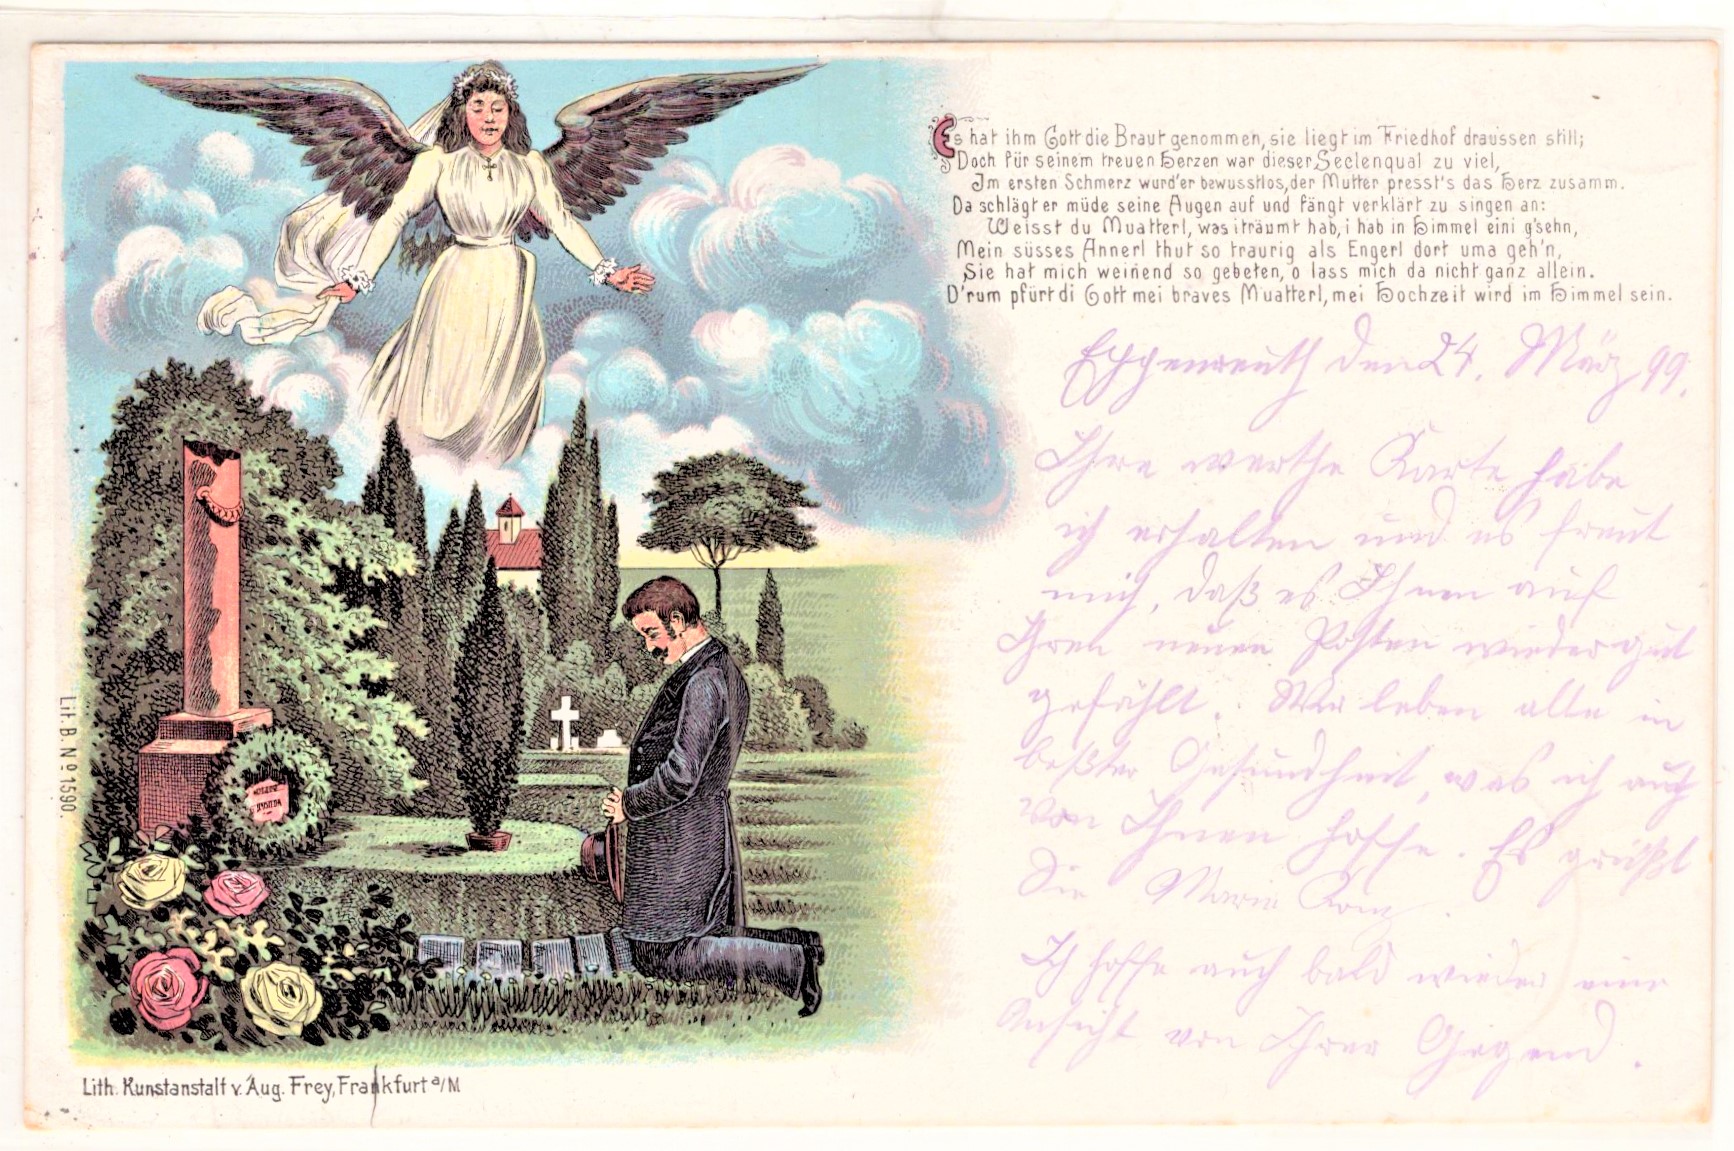 Es hat ihm Gott die Braut genommen, sie liegt im Friedhof draussen still;
Doch für seinem treuen Herzen war dieser Seelenqual zu viel,
Im ersten Schmerz wurd'er bewusstlos, der Mutter presst's das Herz zusamm.
Da schlägt er müde seine Augen auf und fängt verklärt zu singen an:
Weisst du Muatterl, was i träumt hab, i hab in Himmel eini g'sehn,
Mein süsses Annerl thut so traurig als Engerl dort uma geh'n,
Sie hat mich weinend so gebeten, o lass mich da nicht ganz allein.
D'rum pfürt di Gott mei braves Muatterl, mei Hochzeit wird im Himmel sein.
Eppenreuth den 24. März 99.
Ihre werthe Karte habe
ich erhalten und es freut
mich, daß es Ihnen auf
Ihren neuen Posten wieder gut
gefählt. Wir leben alle in
beßter Gesundheit, was ich auch
von Ihnen hoffe. Es grüßt
Sie Marie
Ich hoffe auch bald wieder eine
Ansicht von Ihrer Gegend.
Lit. B. No 1590.
Lith. Kunstanstalt v. Aug. Frey, Frankfurt a/M